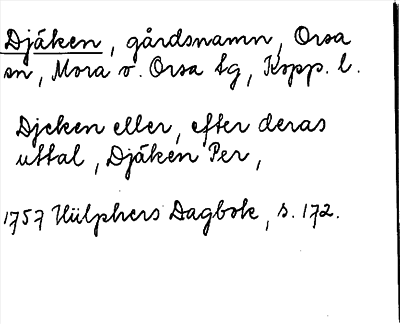 Djäken, gårdsnamn, Orsa
sn, Mora o. Orsa tg, Kopp. l.
Djeken eller, efter deras
uttal, Djäken Per,
1757 Hülphers Dagbok, s. 172.